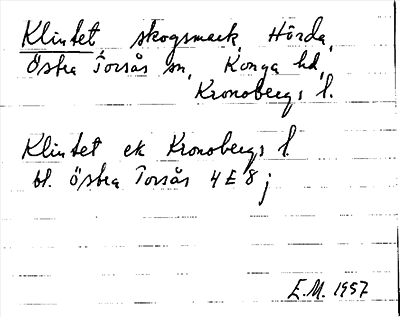 Klintet, skogsmark, Hörda,
Östra Torsås sn, Konga hd,
Kronobergs l.
Klintet ek Kronobergs l.
bl. Östra Torsås 4 E 8 j
E.M. 1957